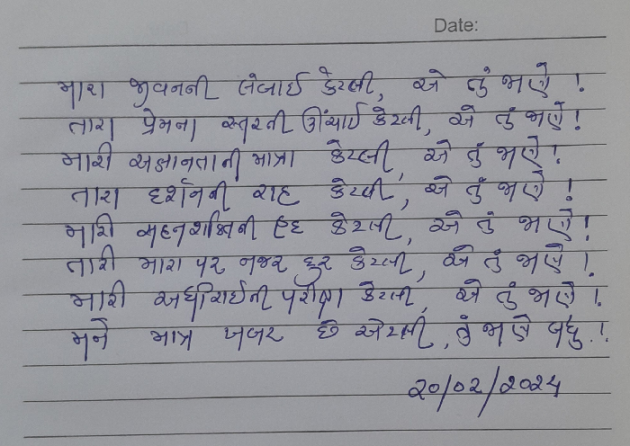 Date:
મારા જીવનની લંબાઈ કેટલી, એ તું જાણે !
તારા પ્રેમના સ્તરની ઊંચાઈ કેટલી, એ તું જાણે !
મારી અજ્ઞાનતાની માત્રા કેટલી, એ તું જાણે !
તારા દર્શનની રાહ કેટલી, એ તું જાણે !
મારી સહનશક્તિની હદ કેટલી, એ તું જાણે !
તારી મારા પર નજર દુર કેટલી, એ તું જાણે !
મારી અધીરાઈની પરીક્ષા કેટલી, એ તું જાણે !
મને માત્ર ખબર છે એટલી, તું જાણે બધુ.!
૨૦/૦૨/૨૦૨૪